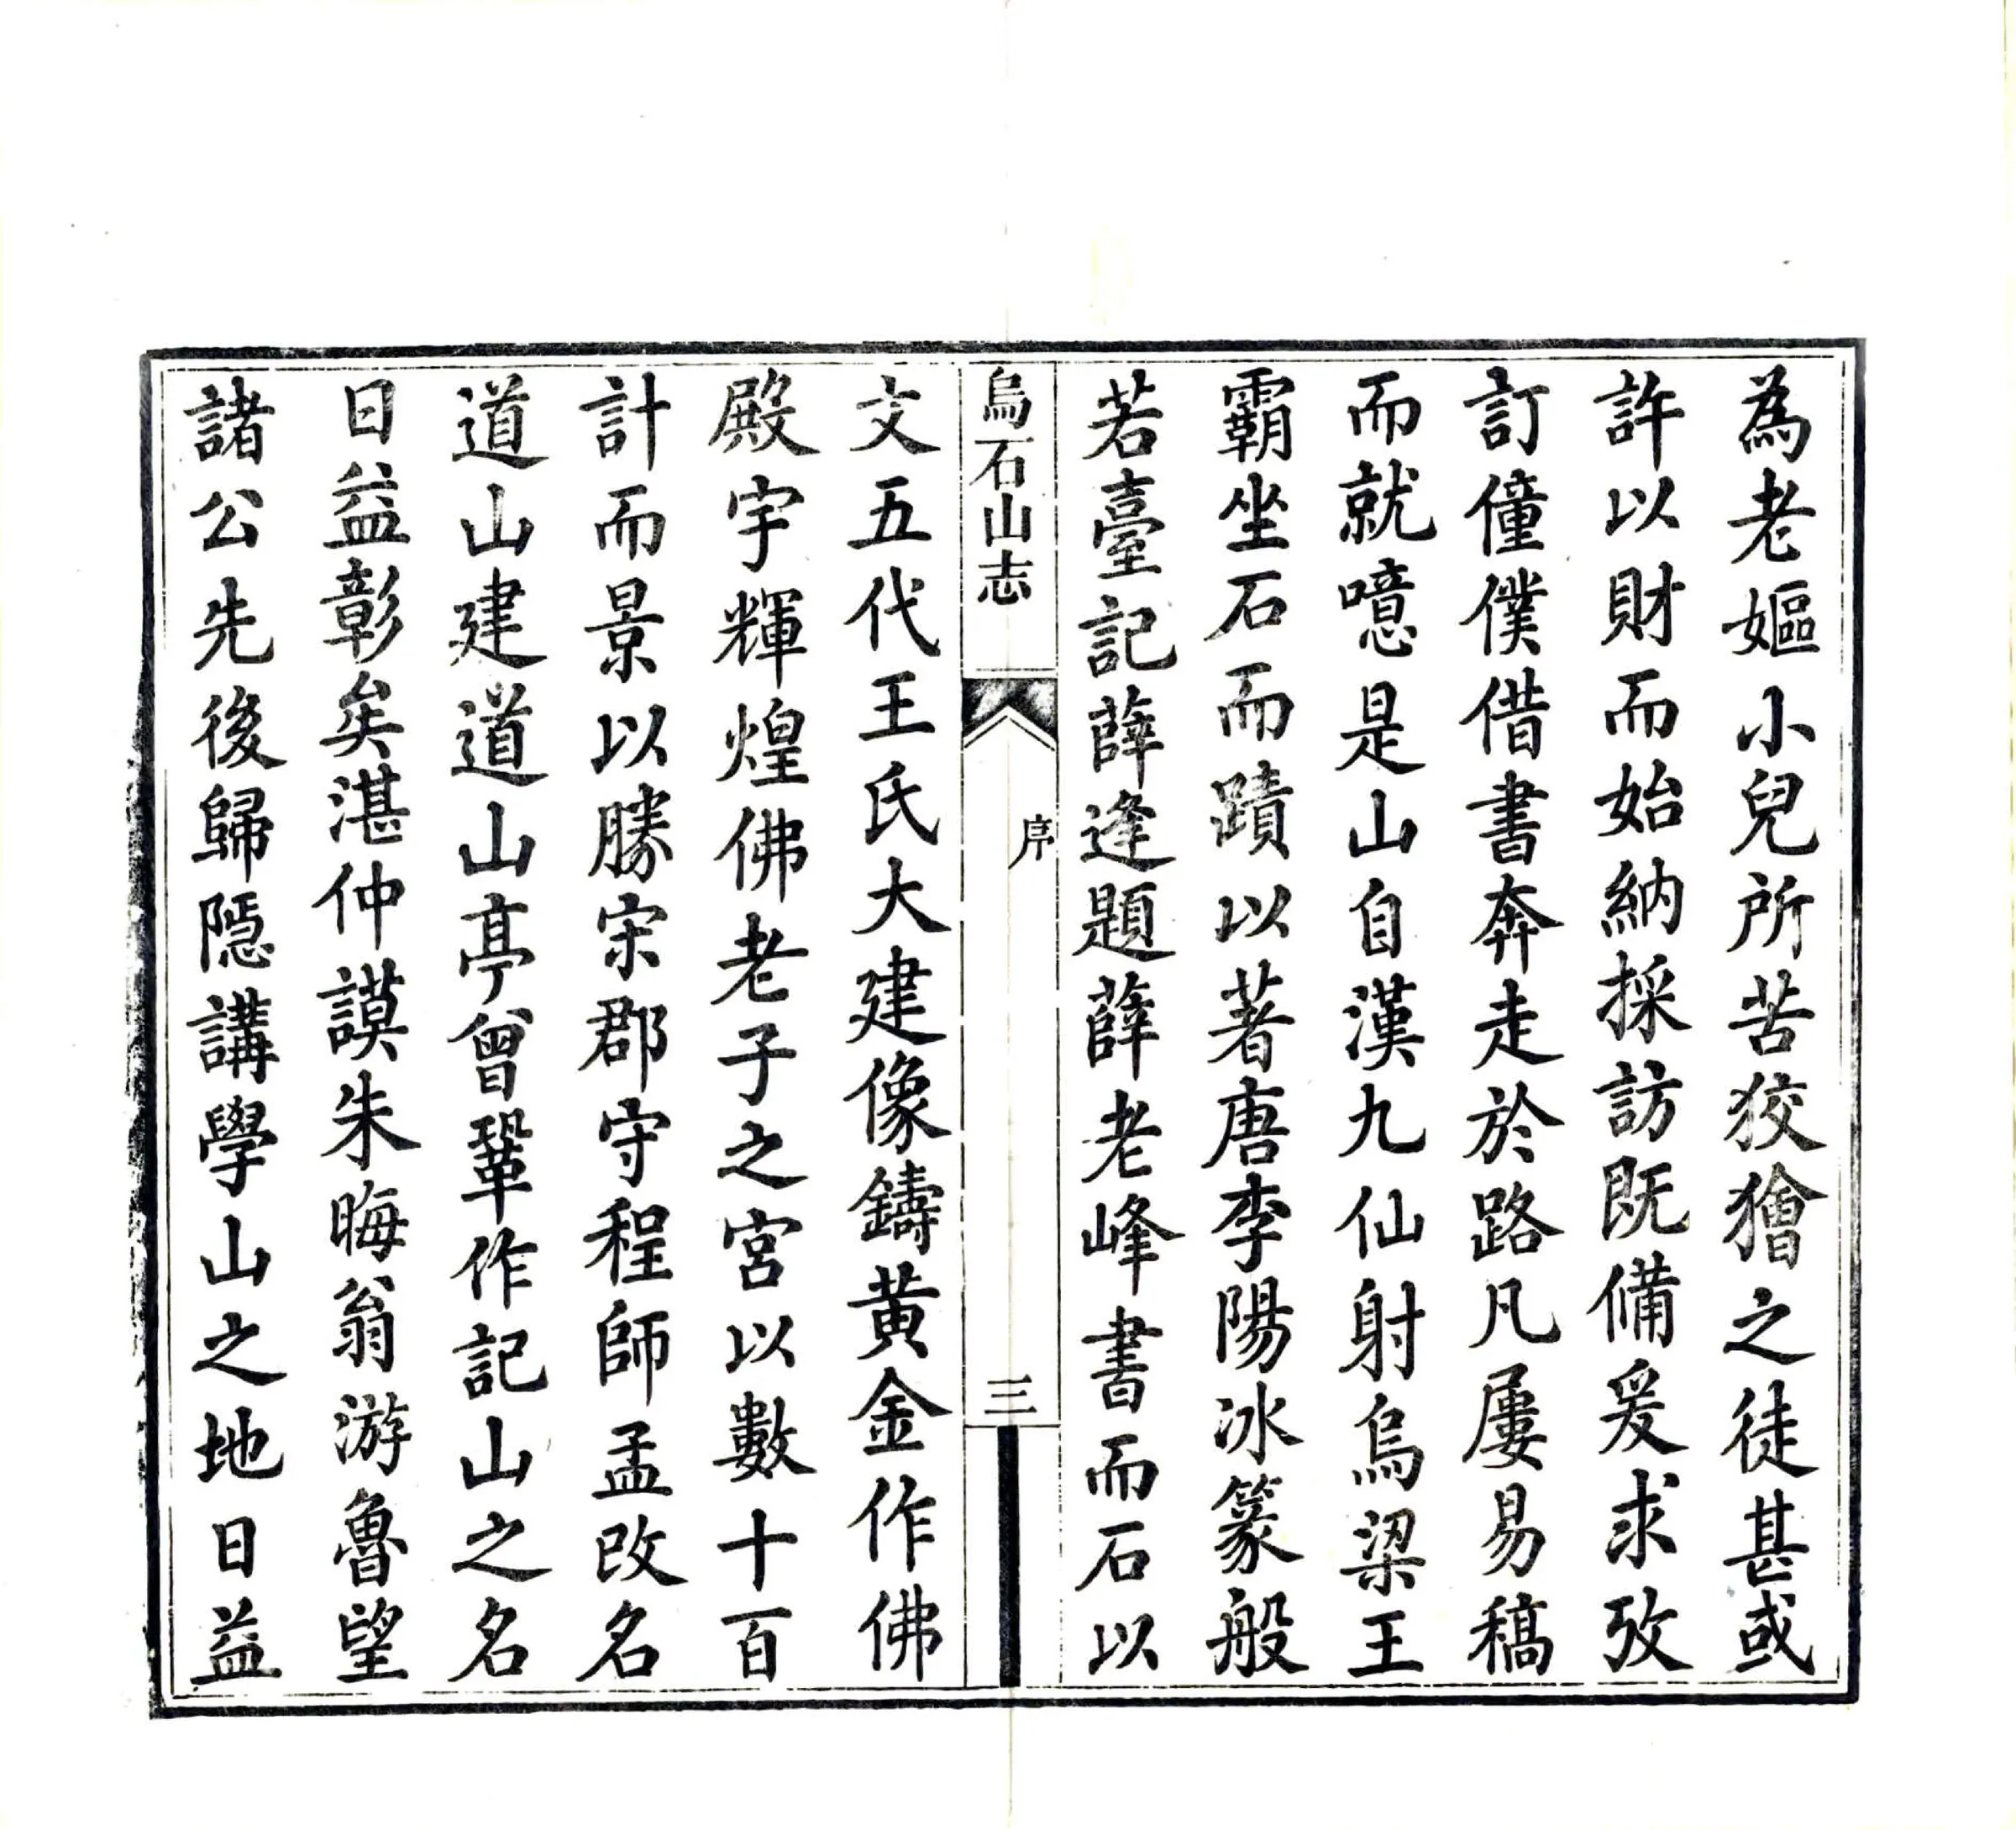 為老嫗小兒所苦狡獪之徒甚或
許以財而始納採訪既備爰求攷
訂僮僕借書奔走於路凡屢易稿
而就噫是山自漢九仙射烏梁王
霸坐石而蹟以著唐李陽冰篆般
若臺記薛逢題薛老峰書而石以
烏石山志
序
三
文五代王氏大建像鑄黃金作佛
殿宇輝煌佛老子之宮以數十百
計而景以勝宋郡守程師孟改名
道山建道山亭曾鞏作記山之名
日益彰矣湛仲謨朱晦翁游魯望
諸公先後歸隱講學山之地日益